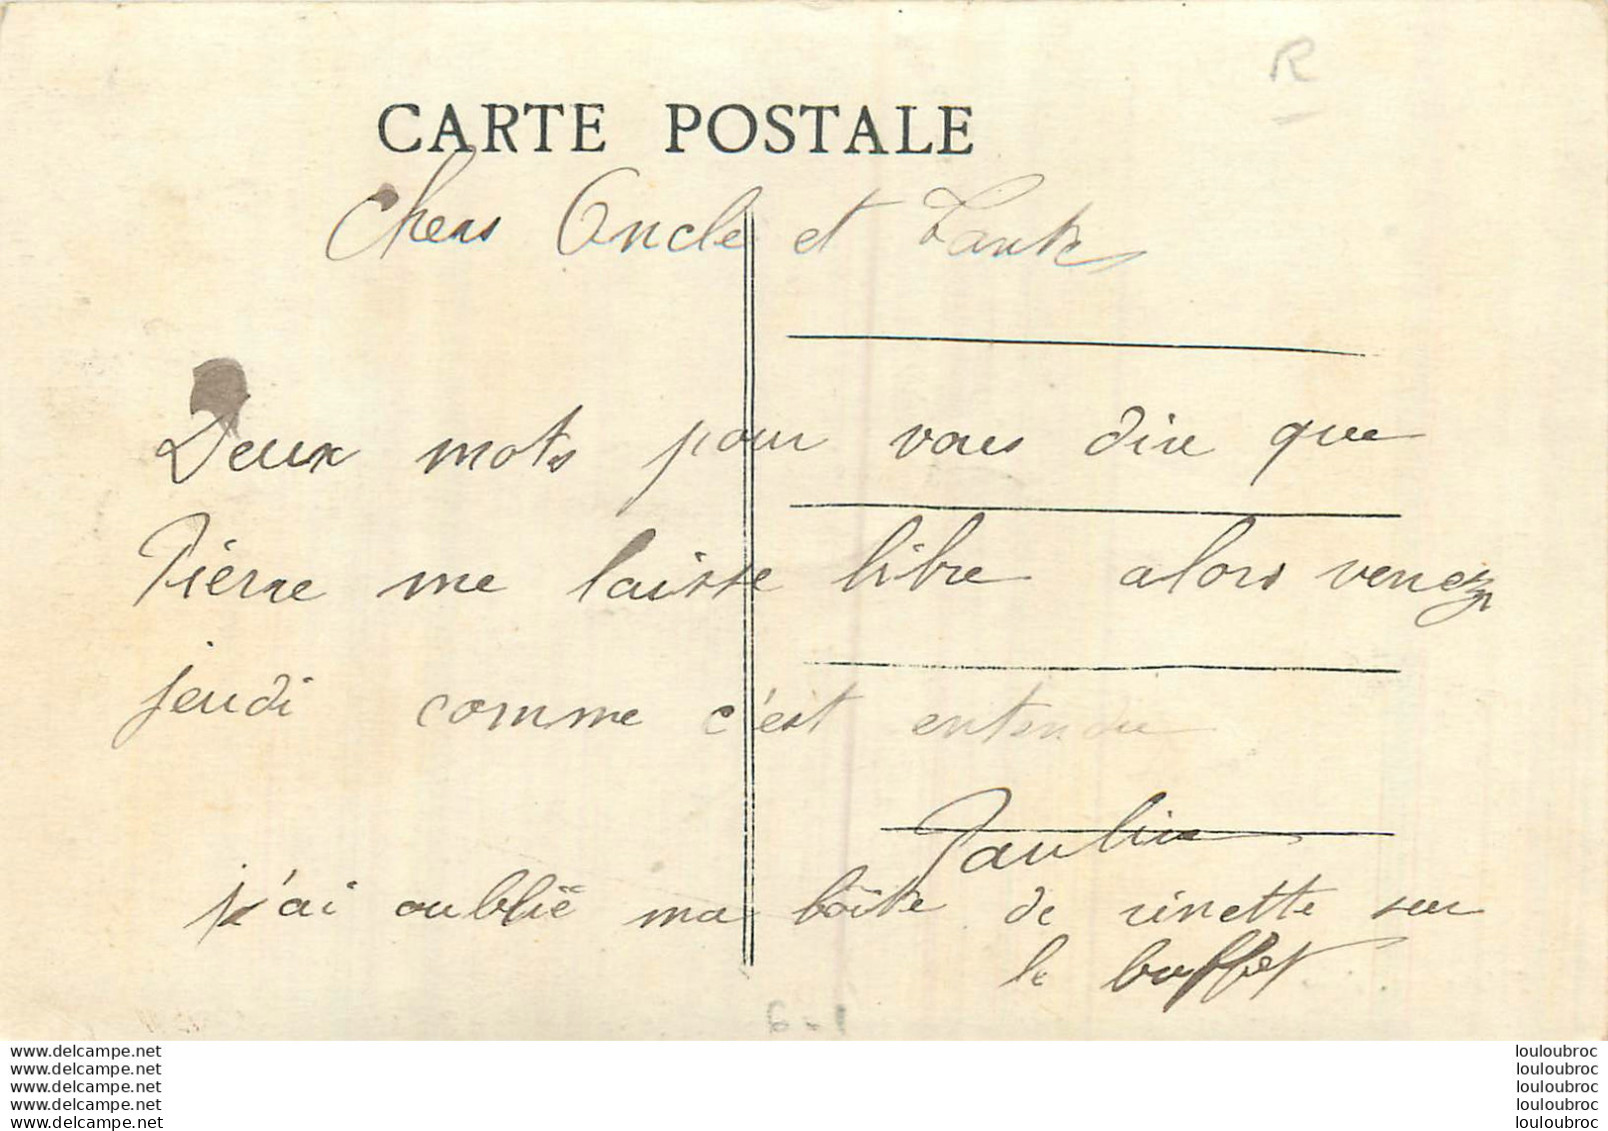 R
CARTE POSTALE
Chers Oncle et Tante
Deux mots pour vous dire que
Pierre me laisse libre alors venez
jeudi comme c'est entendu
Paulin
j'ai oublié ma boîte de rinette sur
le buffet
6-1
www.delcampe.net
www.delcampe.net
www.delcampe.net
www.delcampe.net
www.delcampe.net
louloubroc
louloubroc
louloubroc
louloubroc
louloubroc